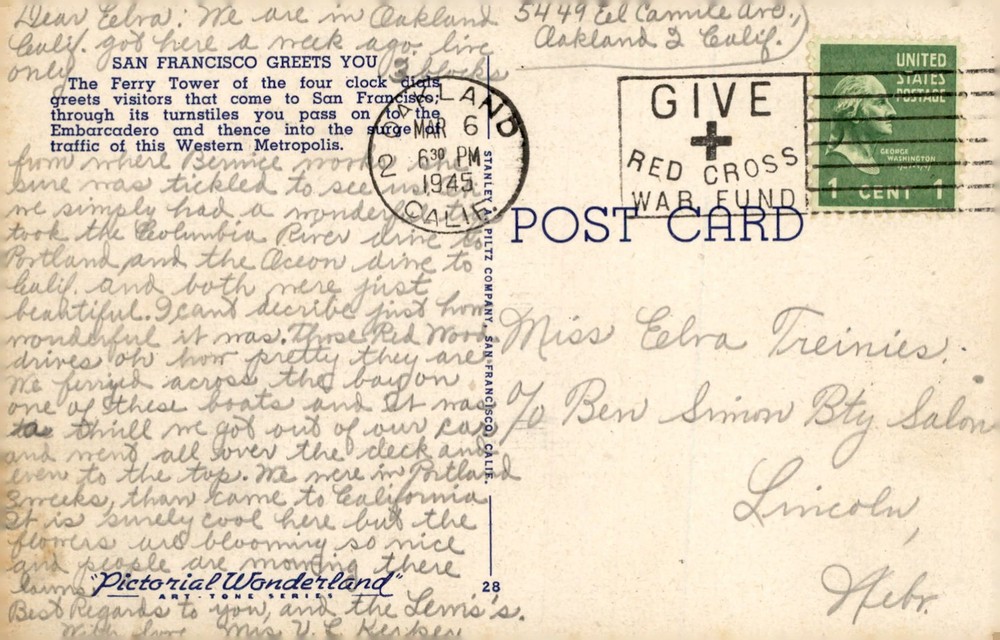 Dear Elva: We are in Oakland
Calif. got here a week ago. live
only 3 blocks
from where Bernice works and
sure was tickled to see us
we simply had a wonderful
took the Columbia River drive to
Portland and the Ocean drive to
Calif. and both were just
beautiful. I cant decribe just how
wonderful it was. Those Red Wood
drives oh how pretty they are
We ferryed across the bay on
one of these boats and it was
a thrill we got out of our car
and went all over the deck and
even to the top. We were in Portland
3 weeks, than came to California
It is surely cool here but the
flowers are blooming so nice
and people are mowing there
lawns
Best Regards to you, and the Lewis's.
With love Mrs V. L.
SAN FRANCISCO GREETS YOU
The Ferry Tower of the four clock dials
greets visitors that come to San Francisco;
through its turnstiles you pass on to the
Embarcadero and thence into the surge of
traffic of this Western Metropolis.
"Pictorial Wonderland"
ART-TONE SERIES
28
STANLEY A. PILTZ COMPANY, SAN FRANCISCO, CALIF.
5449 El Camile Ave.,
Oakland 2 Calif.)
OAKLAND
MAR 6
2 6 30 PM
1945
CALIF.
GIVE
RED CROSS
WAR FUND
UNITED
STATES
POSTAGE
GEORGE
WASHINGTON
1 CENT 1
POST CARD
Miss Elva Treinies.
c/o Ben Simon Bty Salon
Lincoln,
Nebr.